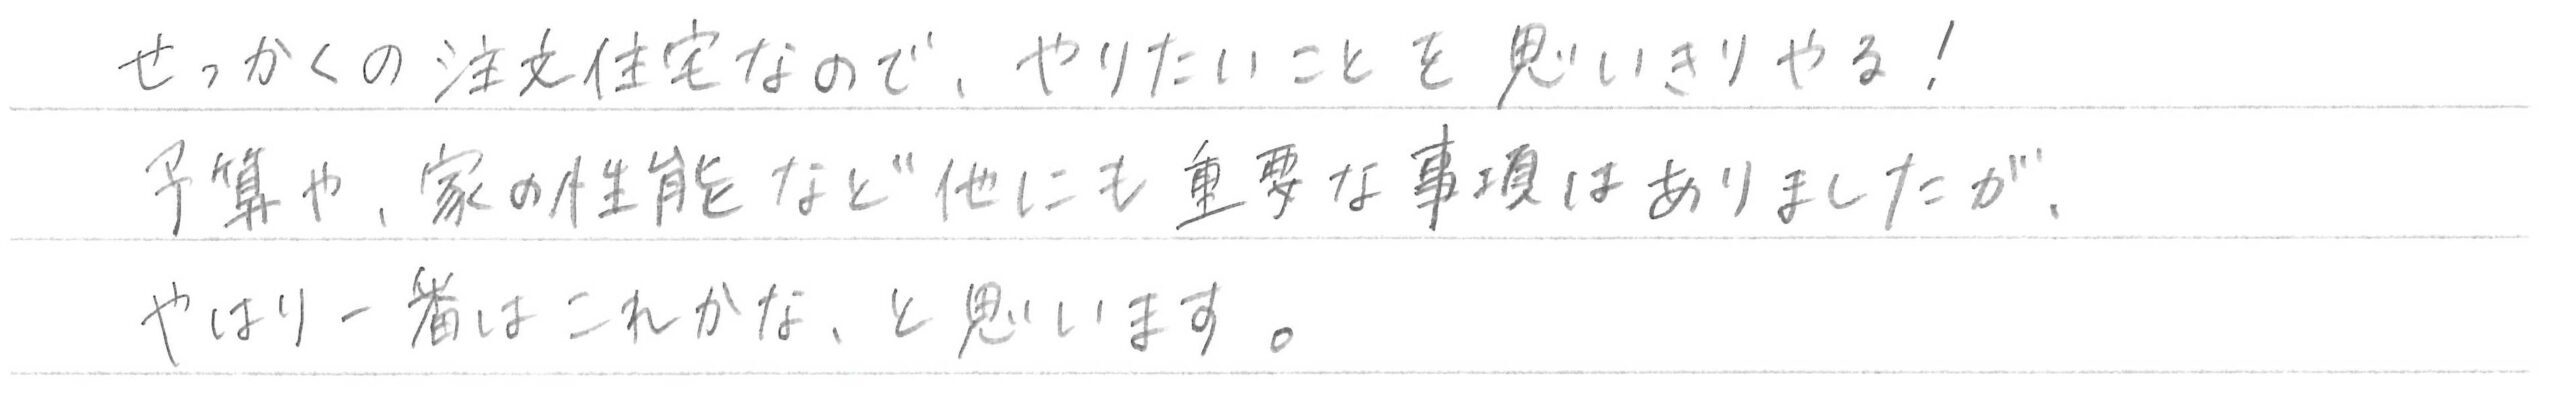 せっかくの注文住宅なので、やりたいことを思いきりやる！
予算や、家の性能など他にも重要な事項はありましたが、
やはり一番はこれかな、と思います。